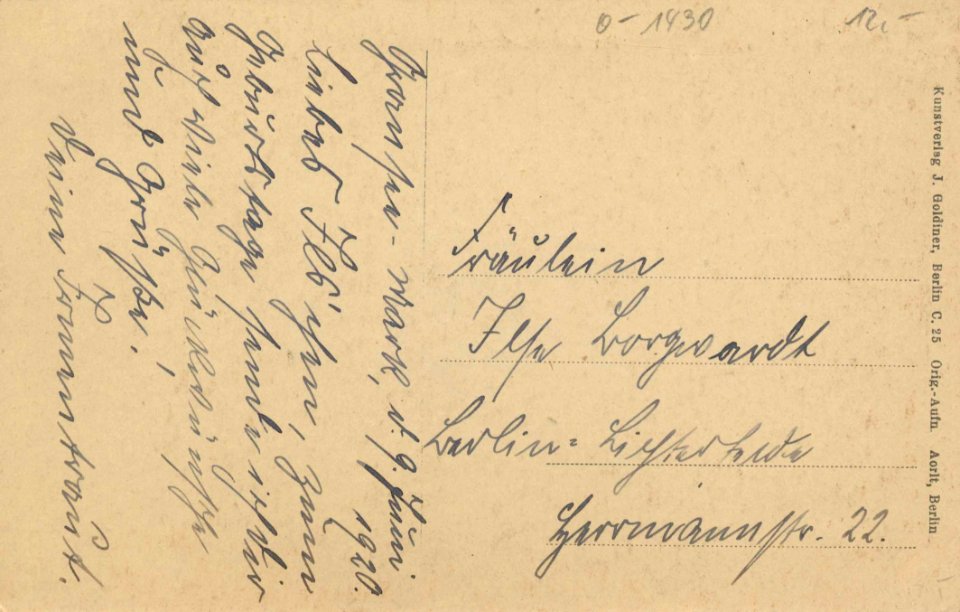 0-1430
12,-
Gransee-Mark, d. 9. Juni.
1920.
Liebes Ils'chen, zum
Geburtstage sende ich Dir
recht viele Glückwünsche
und Grüße.
Deine
Fräulein
Ilse Borgwardt
Berlin-Lichterfelde
Herrmannstr. 22.
Kunstverlag J. Goldiner, Berlin C. 25 Orig.-Aufn. Aorlt, Berlin